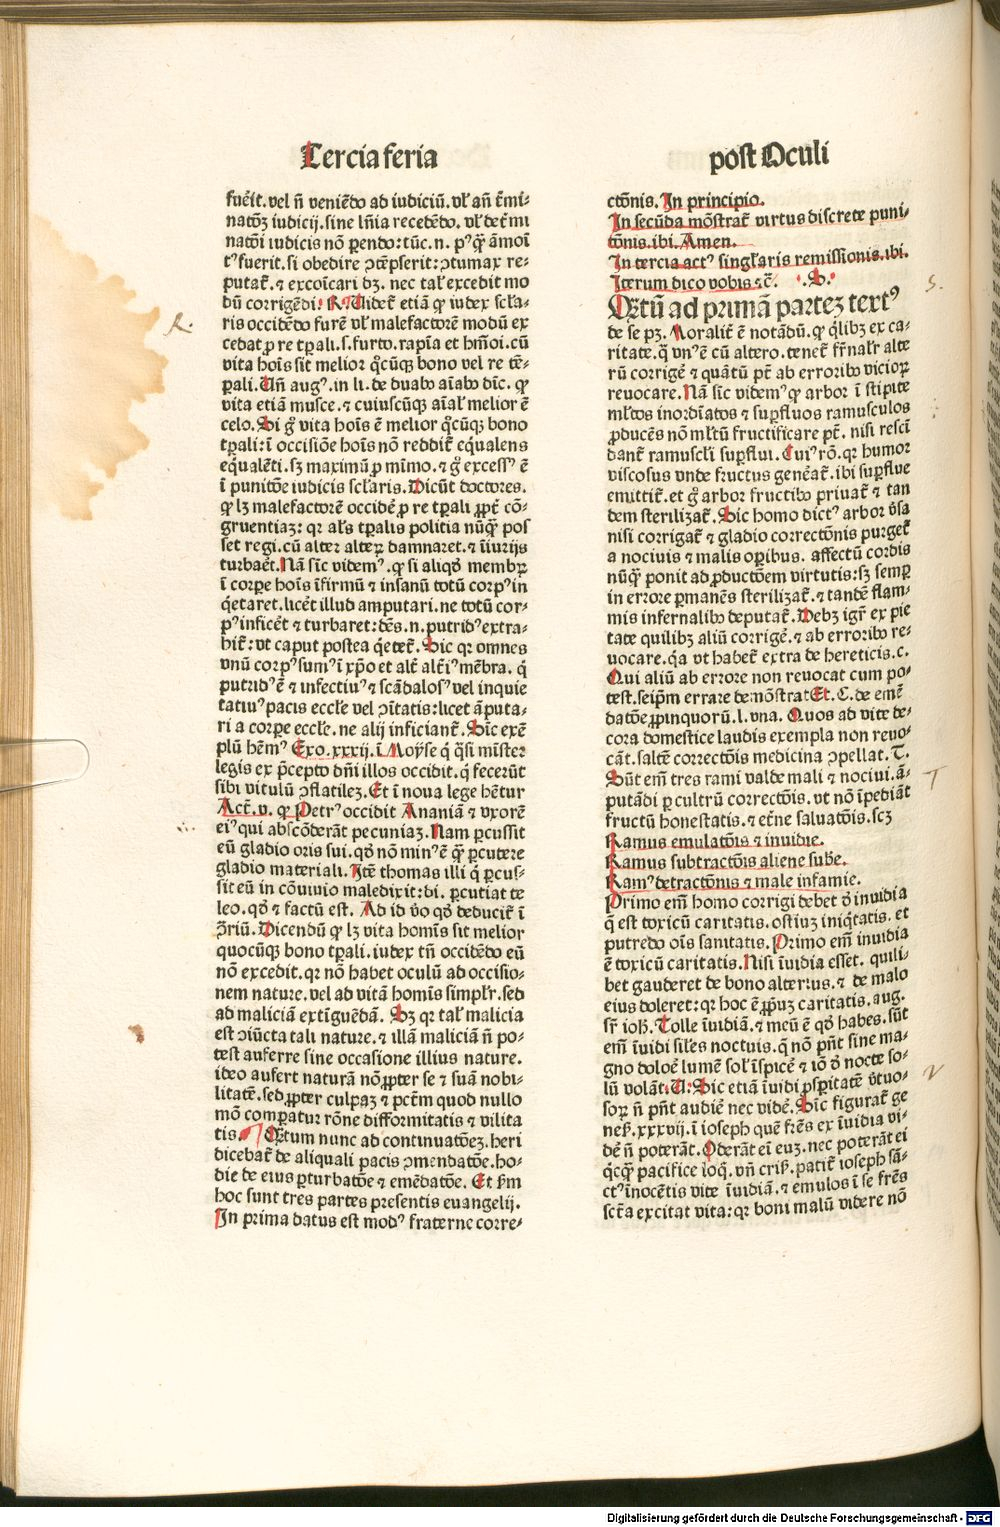 Tercia feria
post Oculi
fuẽit. vel ñ veniẽdo ad iudiciũ. vl̃ añ t̃mi⸗
natõꝫ iudicij. sine lñia recedẽdo. vl̃ det̃mi
natõi iudicis nõ ꝑendo: tũc. n. pꝰ q̃ȝ ãmoĩ
tꝰ fuerit. si obedire ↄtẽpserit: ↄtumax re⸗
putat̃. ⁊ excoĩcari dꝫ. nec tal̃ excedit mo
dũ corrigẽdi. R. Uidet̃ etiã ꝙ iudex scl̃a⸗
ris occidẽdo furẽ vl̃ malefactorẽ modũ ex
cedat ꝑ re tꝑali. s. furto. rapĩa et hm̃oi. cũ
vita hoĩs sit melior q̃cũqꝫ bono vel re tẽ⸗
ꝑali. Uñ augꝰ. in li. de duabꝰ aĩabꝰ dic̃. ꝙ
vita etiã musce. ⁊ cuiuscũqꝫ aĩal̃ melior ẽ
celo. Si gͦ vita hoĩs ẽ melior q̃cũqꝫ bono
tꝑali: ĩ occisiõe hoĩs nõ reddit̃ eq̃ualens
eq̃ualẽti. sꝫ maximũ ꝑ mĩmo. ⁊ gͦ excessꝰ ẽ
ĩ punitõe iudicis scl̃aris. Dicũt doctores.
ꝙ lꝫ malefactorẽ occidẽ ꝑ re tꝑali ꝓpt̃ cõ⸗
gruentiaꝫ: qꝛ al̃s tꝑalis politia nũq̃ȝ pos
set regi. cũ alter alteꝝ damnaret. ⁊ ĩiurijs
turbaẽt. Nã sic videmꝰ. ꝙ si aliqd̃ membꝝ
ĩ corꝑe hoĩs ĩfirmũ ⁊ insanũ totũ corpꝰ in
q̃etaret. licẽt illud amputari. ne totũ cor⸗
pꝰ inficẽt ⁊ turbaret: dẽs. n. putridꝰ extra⸗
hit̃: vt caput postea q̃etet̃. Sic qꝛ omnes
vnũ corpꝰ sumꝰ ĩ xp̃o et alt̃ alt̃iꝰ mẽbra. q̃
putridꝰ ẽ ⁊ infectiuꝰ ⁊ scãdalosꝰ vel inquie
tatiuꝰ pacis eccl̃e vel ↄĩtatis: licet ãputa⸗
ri a corꝑe eccl̃e. ne alij inficiant̃. Sic̃ exẽ
plũ hẽmꝰ Exo. xxxij. ĩ Moÿse q̃ q̃si mĩster
legis ex p̃cepto dñi illos occidit. q̃ fecerũt
sibi vitulũ ↄflatileȝ. Et ĩ noua lege hẽtur
Act̃. v. ꝙ Petrꝰ occidit Ananiã ⁊ vxorẽ
eiꝰ qui abscõderãt pecuniaꝫ. Nam ꝑcussit
eũ gladio oris sui. qd̃ nõ minꝰ ẽ q̃ȝ ꝑcutere
gladio materiali. Itẽ thomas illi q̃ ꝑcus⸗
sit eũ in cõuiuio maledixit: di. ꝑcutiat te
leo. qd̃ ⁊ factũ est. Ad id v̊o qd̃ deducit̃ ĩ
ↄ̃riũ. Dicendũ ꝙ lꝫ vita homĩs sit melior
quocũqꝫ bono tꝑali. iudex tñ occidẽdo eũ
nõ excedit. qꝛ nõ habet oculũ ad occisio⸗
nem nature. vel ad vitã homĩs simpl̃r. sed
ad maliciã extĩguẽdã. Sꝫ qꝛ tal̃ malicia
est ↄiũcta tali nature. ⁊ illã maliciã ñ po⸗
test auferre sine occasione illius nature.
ideo aufert naturã nõ ꝓpter se ⁊ suã nobi⸗
litatẽ. sed ꝓpter culpaꝫ ⁊ pct̃m quod nullo
mõ comꝑatur rõne difformitatis ⁊ vilita
tis. Qr̃tum nunc ad continuatõeȝ. heri
dicebat̃ de aliquali pacis ↄmendatõe. ho⸗
die de eius ꝑturbatõe ⁊ emẽdatõe. Et ẜm
hoc sunt tres partes presentis euangelij.
In prima datus est modꝰ fraterne corre⸗
ctõnis. In principio.
In secũda mõstrat̃ virtus discrete puni⸗
tõnis. ibi. Amen.
In tercia actꝰ singl̃aris remissiõnis. ibi.
Iterum dico vobis ⁊c̃. S.
Qr̃tũ ad primã parteȝ textꝰ
de se pꝫ. Moralit̃ ẽ notãdũ. ꝙ q̃libꝫ ex ca⸗
ritate. q̃ vnꝰ ẽ cũ altero. tenet̃ fr̃nal̃r alte
rũ corrigẽ ⁊ quãtũ pt̃ ab erroribꝰ vicioꝝ
reuocare. Nã sic videmꝰ ꝙ arbor ĩ stipite
ml̃tos inordĩatos ⁊ suꝑfluos ramusculos
ꝓducẽs nõ ml̃tũ fructificare pt̃. nisi rescĩ
dant̃ ramuscl̃i suꝑflui. Cuiꝰ rõ. qꝛ humor
viscosus vnde fructus genẽat̃. ibi suꝑflue
emittit̃. et gͦ arbor fructibꝰ priuat̃ ⁊ tan
dem sterilizat̃. Sic homo dictꝰ arbor v̊sa
nisi corrigat̃ ⁊ gladio correctõnis purget̃
a nociuis ⁊ malis oꝑibus. affectũ cordis
nũq̃ȝ ponit ad ꝓductõem virtutis: sꝫ semꝑ
in errore ꝑmanẽs sterilizat̃. ⁊ tandẽ flam⸗
mis infernalibꝰ deputat̃. Debꝫ igr̃ ex pie
tate quilibꝫ aliũ corrigẽ. ⁊ ab erroribꝰ re⸗
uocare. q̃a vt habet̃ extra de hereticis. c.
Qui aliũ ab errore non reuocat cum po⸗
test. seip̃m errare demõstrat Et. C. de emẽ
datõe ꝓpinquorũ. l. vna. Quos ad vite de⸗
cora domestice laudis exempla non reuo⸗
cãt. saltẽ correctõis medicina ↄpellat. T.
Sũt em̃ tres rami valde mali ⁊ nociui. ã⸗
putãdi ꝑ cultrũ correctõis. vt nõ ĩpediãt
fructũ honestatis. ⁊ et̃ne saluatõis. scȝ
Ramus emulatõis ⁊ inuidie.
Ramus subtractõis aliene sub̃e.
Ramꝰ detractõnis ⁊ male infamie.
Primo em̃ homo corrigi debet d̊ inuidia
q̃ est toxicũ caritatis. ostiuȝ iniq̃tatis. et
putredo oĩs sanitatis. Primo em̃ inuidia
ẽ toxicũ caritatis. Nisi ĩuidia esset. quili⸗
bet gauderet de bono alterius. ⁊ de malo
eius doleret: qꝛ hoc ẽ ꝓpuȝ caritatis. aug.
sr̃ ioh̃. Tolle ĩuidiã. ⁊ meũ ẽ qd̃ habes. sũt
em̃ ĩuidi sil̃es noctuis. q̃ nõ pñt sine ma⸗
gno doloẽ lumẽ sol̃ ĩspicẽ ⁊ iõ d̊ nocte so⸗
lũ volãt. U. Sic etiã ĩuidi ꝓsꝑitatẽ v̊tuo⸗
soꝝ ñ pñt audiẽ nec vidẽ. Sic̃ figurat̃ ge
nes̃. xxxvij. ĩ ioseph quẽ fr̃es ex ĩuidia vi⸗
dẽ ñ poterãt. Oderãt eĩ euȝ. nec poterãt ei
q̃cq̃ȝ pacifice loq̃. vñ cris̃. patit̃ ioseph sã⸗
ctꝰ ĩnocẽtis vite ĩuidiã. ⁊ emulos ĩ se fr̃es
sct̃a excitat vita: qꝛ boni malũ videre nõ
R.
S.
T
V
Digitalisierung gefördert durch die Deutsche Forschungsgemeinschaft - DFG